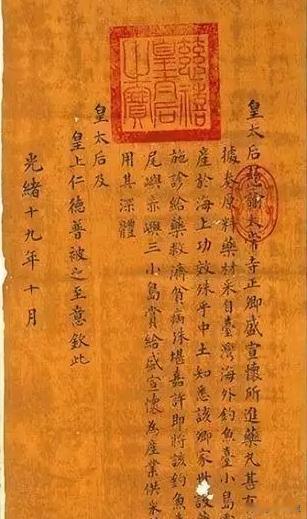 皇太后慈諭太常寺正卿盛宣懷所進藥丸甚有
據奏原料藥材采自臺灣海外釣魚臺小島
產於海上功效殊乎中土知悉該卿家世設
施診給藥救濟貧病殊堪嘉許即將該釣魚
尾嶼赤嶼三小島賞給盛宣懷為產業供采
用其深體
皇太后及
皇上仁德普被之至意欽此
光緒十九年十月